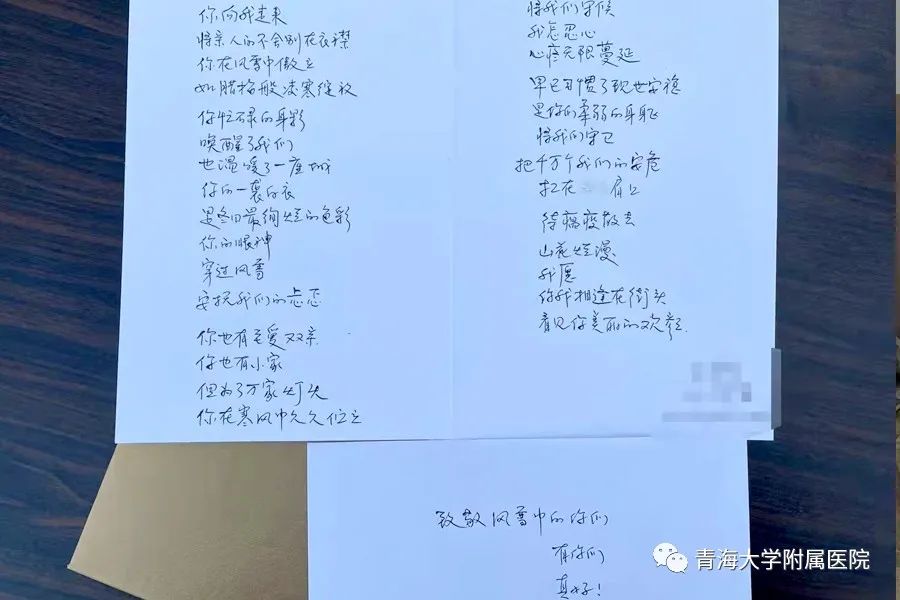 你向我走来
将亲人的不舍别在衣襟
你在风雪中傲立
如腊梅般凌寒绽放
你忙碌的身影
唤醒了我们
也温暖了一座城
你的一袭白衣
是冬日最绚烂的色彩
你的眼神
穿过风雪
安抚我们的忐忑
你也有至爱双亲
你也有小家
但为了万家灯火
你在寒风中久久伫立
将我们守候
我怎忍心
心疼无限蔓延
早已习惯了现世安稳
是你们柔弱的身躯
将我们守卫
把千万个我们的安危
扛在 肩上
待瘟疫散去
山花烂漫
我愿
你我相逢在街头
看见你美丽的欢颜.
致敬风雪中的你们
有你们
真好!
青海大学附属医院